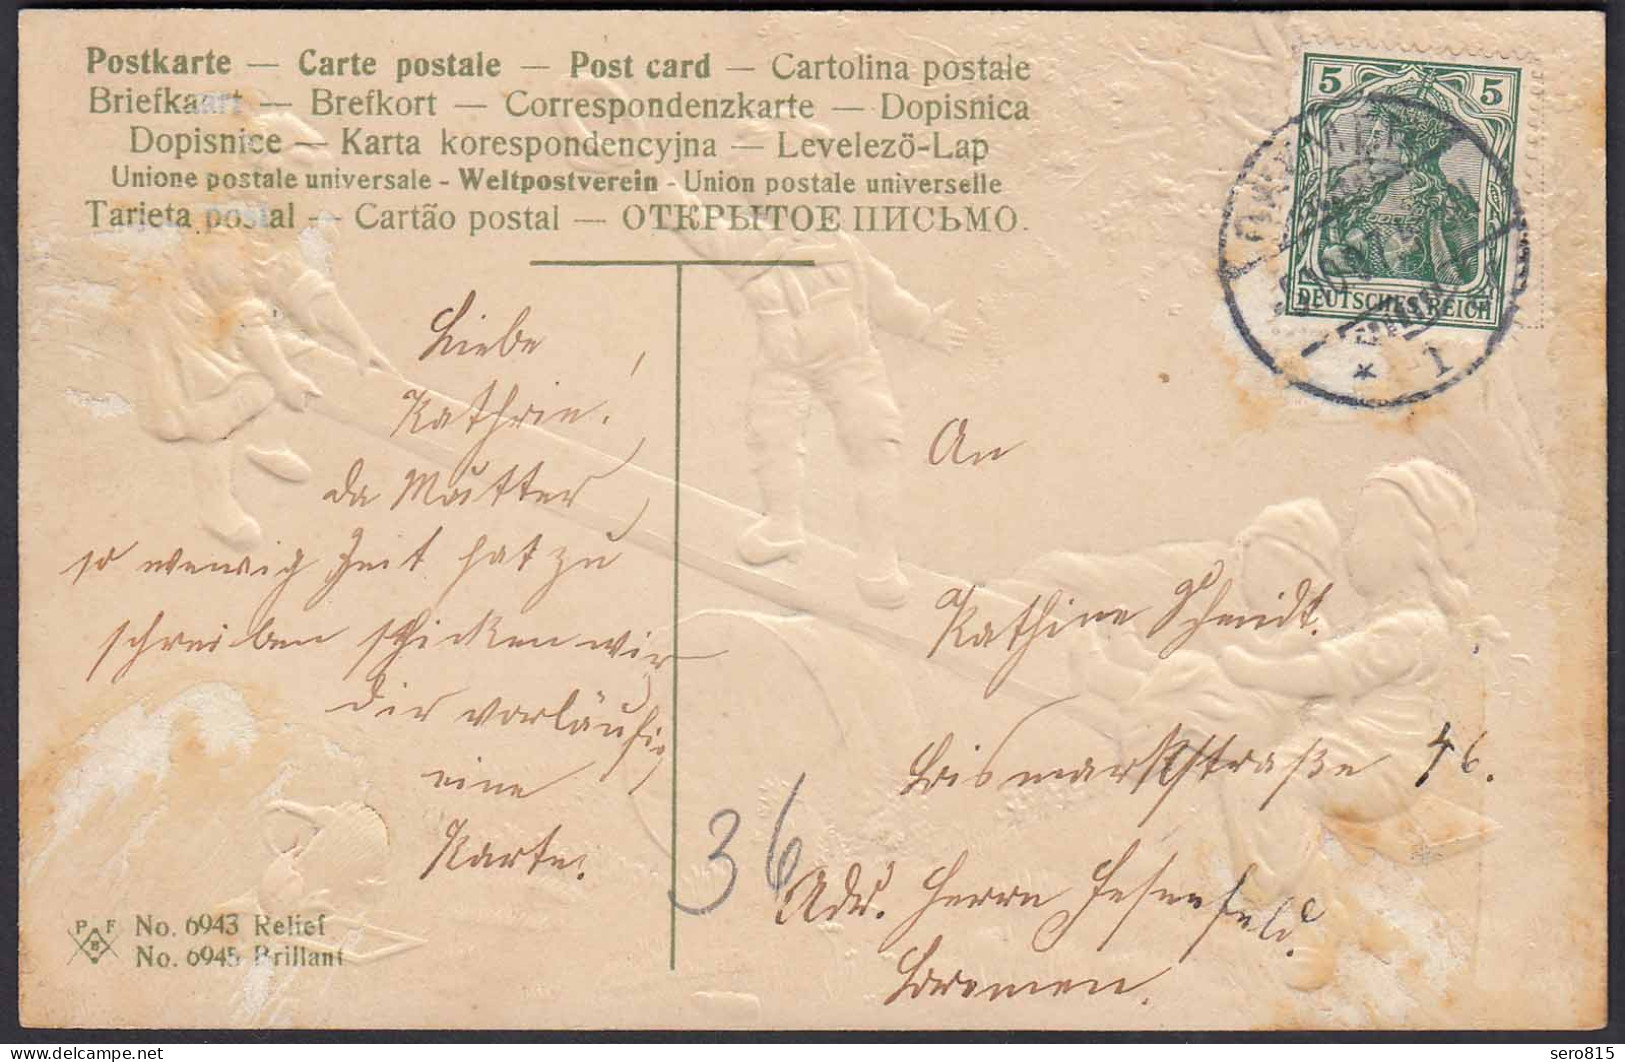 Postkarte — Carte postale — Post card — Cartolina postale
Briefkaart — Brefkort — Correspondenzkarte — Dopisnica
Dopisnice — Karta korespondencyjna — Levelezö-Lap
Unione postale universale - Weltpostverein - Union postale universelle
Tarjeta postal — Cartão postal — ОТКРЫТОЕ ПИСЬМО.
5 5
DEUTSCHES REICH
* 1
Liebe
Kathrin!
da Mutter
so wenig Zeit hat zu
schreiben schicken wir
dir vorläufig
eine
Karte.
An
Kathine Schmidt.
Bismarkstraße 46.
36
Adr. Herrn Hesenfeld.
Bremen.
P F
B
No. 6943 Relief
No. 6945 Brillant
https://www.delcampe.net
sero815